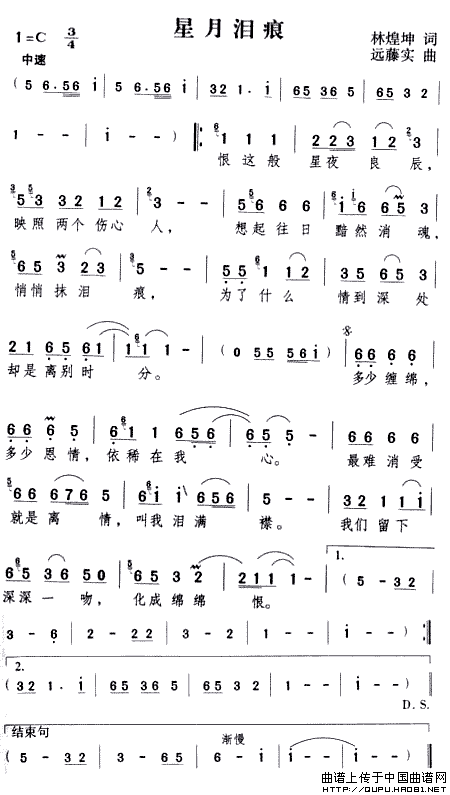 星月泪痕
1=C 3/4
林煌坤 词
中速
远藤实 曲
(5 6·56 i | 5 6·56 i | 32 1· i | 65 35 36 | 65 3 2 |
1 - - | i - - ) ‖: 1 1 1 | 2 23 2 3 |
恨这般 星夜良辰,
5 3 32 12 | 3 - - | 5 6 6 6 | i6 65 3 |
映照两个伤心 人, 想起往日 黯然消魂,
65 3 23 | 5 - - | 55 1 12 | 35 65 3 |
悄悄抹泪 痕, 为了什么 情到深处
21 65 61 | 1 1 - | (0 55 56i) | 66 6 6 |
却是离别时 分。 多少缠绵,
66 6 5 | 6 1 1 656 | 65 5 - | 6 6 6 6 |
多少恩情, 依稀在我 心。 最难消受
66 6 676 5 | 6 i 6i 656 | 5 - - | 32 11 i |
就是离 情, 叫我泪满 襟。 我们留下
1.
65 36 50 | 5 65 32 | 211 1 - | (5 - 32 |
深深一吻, 化成绵绵 恨。
3 - 6 | 2 - 22 | 5 - 32 | 1 - - | i - ) :‖
2.
(32 1· i | 65 35 36 | 65 3 5 | i - - | i - ) ‖
D.S.
结束句
渐慢
(5 - 32 | 55 35 | 6 - i | i - - | i - - ) ‖
曲谱上传于中国曲谱网
HTTP://QUPU.HAO81.NET